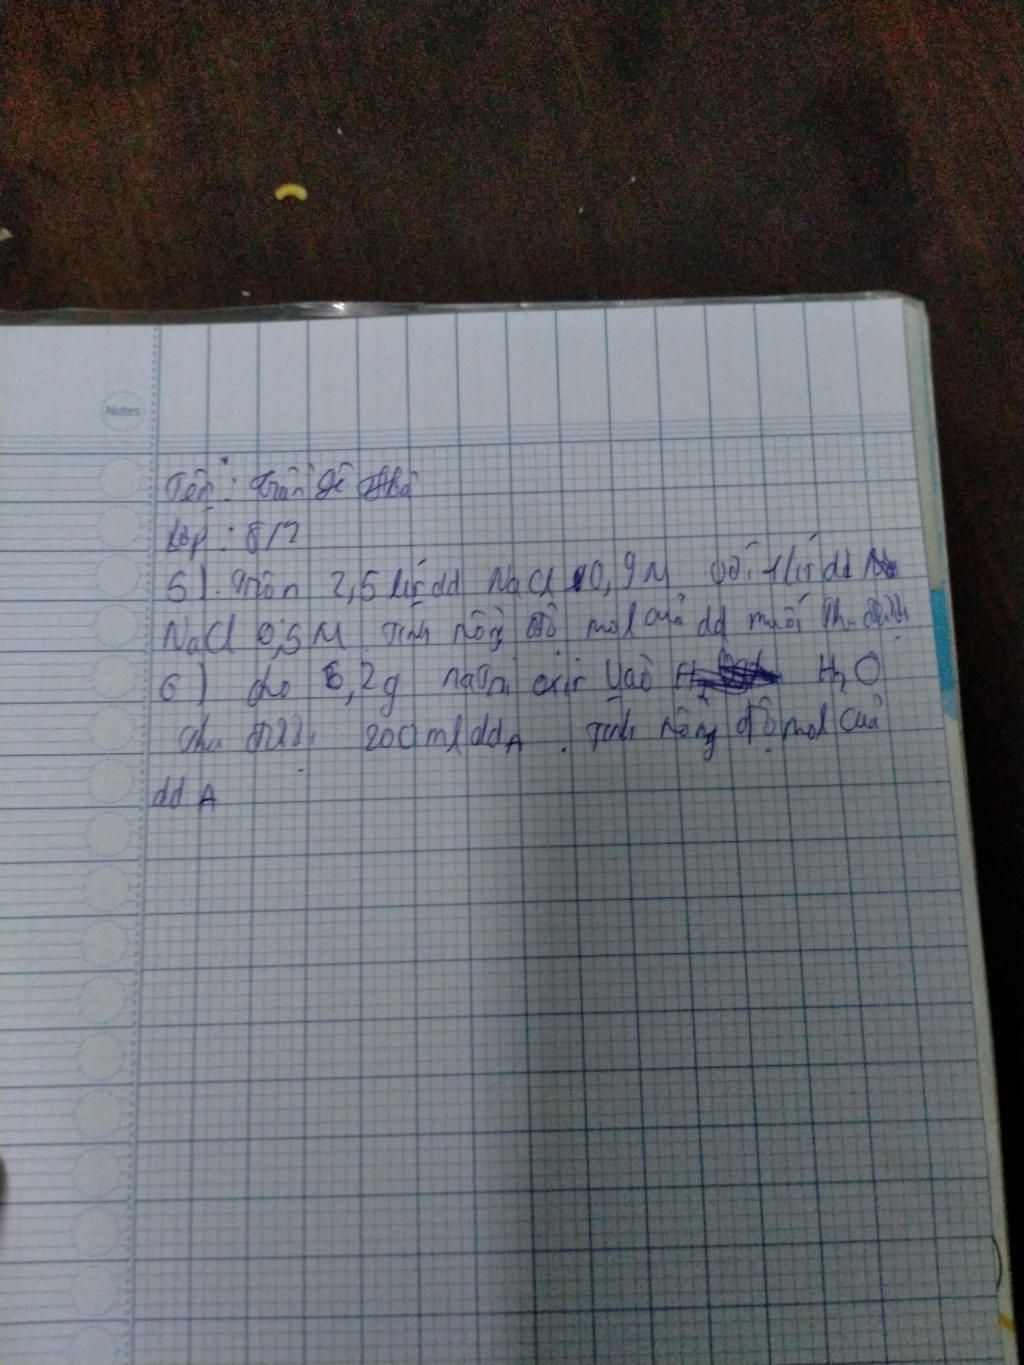 Notes
Tên: Trần Lê
Lớp: 8/7
5). Trộn 2,5 lít dd NaCl 0,9M với 1 lít dd
NaCl 0,5M. Tính nồng độ mol của dd muối thu được
6) cho 6,2g natri oxit vào H2O
thu được 200ml dd A. Tính nồng độ mol của
dd A